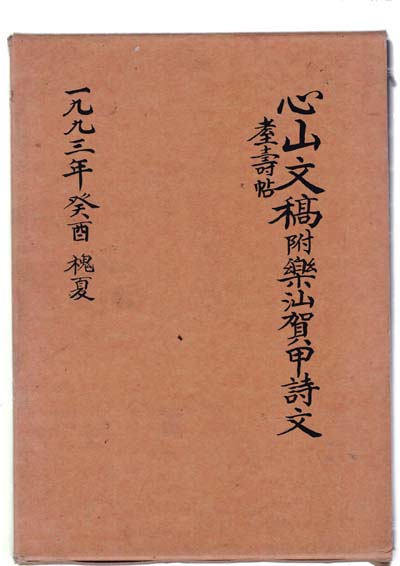 心山文稿附樂汕賀甲詩文
耋壽帖
一九九三年癸酉槐夏